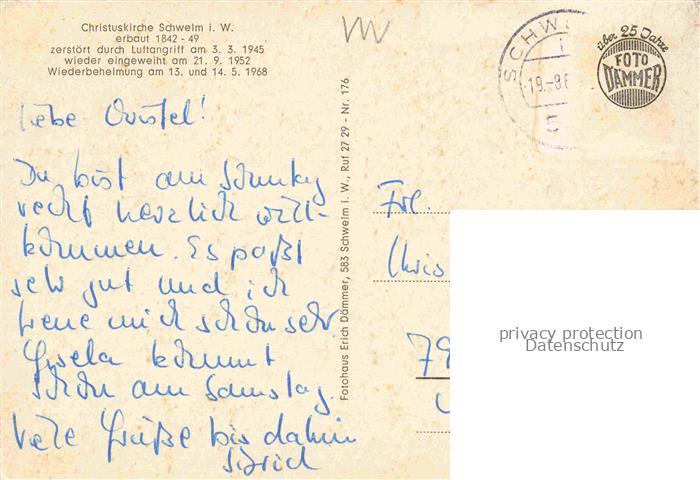 Christuskirche Schwelm i. W.
erbaut 1842 - 49
zerstört durch Luftangriff am 3. 3. 1945
wieder eingeweiht am 21. 9. 1952
Wiederbehelmung am 13. und 14. 5. 1968
VW
SCHW
19.-8.6
5
über 25 Jahre
FOTO
DÄMMER
Liebe Christel!
Du bist am Sonntag
recht herzlich will-
kommen. Es paßt
sehr gut und ich
freue mich schon sehr.
Gisela kommt
schon am Samstag.
Viele Grüße bis dahin
Fotohaus Erich Dämmer, 583 Schwelm i. W., Ruf 27 29 - Nr. 176
Frl.
Chris
79
privacy protection
Datenschutz